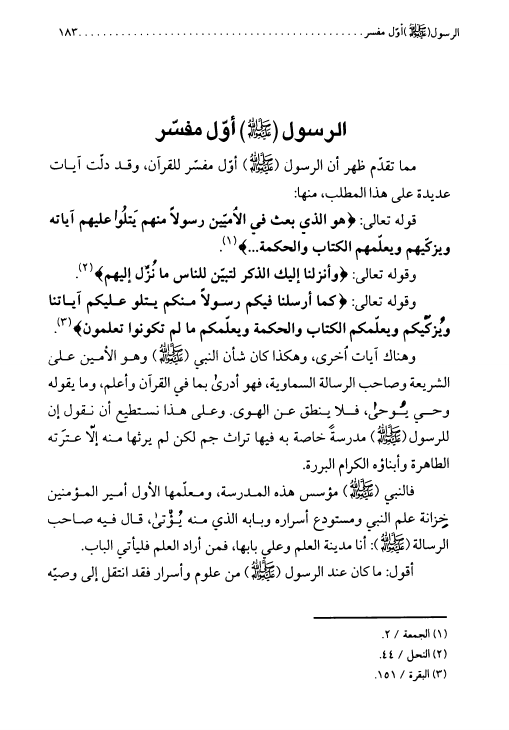 الرسول(ﷺ) أوّل مفسر ................................................ ١٨٣
الرسول (ﷺ) أوّل مفسّر
مما تقدّم ظهر أن الرسول (ﷺ) أوّل مفسّر للقرآن، وقد دلّت آيات
عديدة على هذا المطلب، منها:
قوله تعالى: ﴿هو الذي بعث في الأُميّين رسولاً منهم يَتلُوا عليهم آياته
ويزكّيهم ويعلّمهم الكتاب والحكمة...﴾(١).
وقوله تعالى: ﴿وأنزلنا إليك الذكر لتبيّن للناس ما نُزّل إليهم﴾(٢).
وقوله تعالى: ﴿كما أرسلنا فيكم رسولاً منكم يتلو عليكم آياتنا
ويُزكّيكم ويعلّمكم الكتاب والحكمة ويعلّمكم ما لم تكونوا تعلمون﴾(٣).
وهناك آيات أخرى، وهكذا كان شأن النبي (ﷺ) وهو الأمين على
الشريعة وصاحب الرسالة السماوية، فهو أدرىٰ بما في القرآن وأعلم، وما يقوله
وحي يُوحىٰ، فلا ينطق عن الهوى. وعلى هذا نستطيع أن نقول إن
للرسول(ﷺ) مدرسةً خاصة به فيها تراث جم لكن لم يرثها منه إلّا عترته
الطاهرة وأبناؤه الكرام البررة.
فالنبي (ﷺ) مؤسس هذه المدرسة، ومعلّمها الأول أمير المؤمنين
خِزانة علم النبي ومستودع أسراره وبابه الذي منه يُؤتىٰ، قال فيه صاحب
الرسالة (ﷺ): أنا مدينة العلم وعلي بابها، فمن أراد العلم فليأتي الباب.
أقول: ما كان عند الرسول (ﷺ) من علوم وأسرار فقد انتقل إلى وصيّه
(١) الجمعة / ٢.
(٢) النحل / ٤٤.
(٣) البقرة / ١٥١.